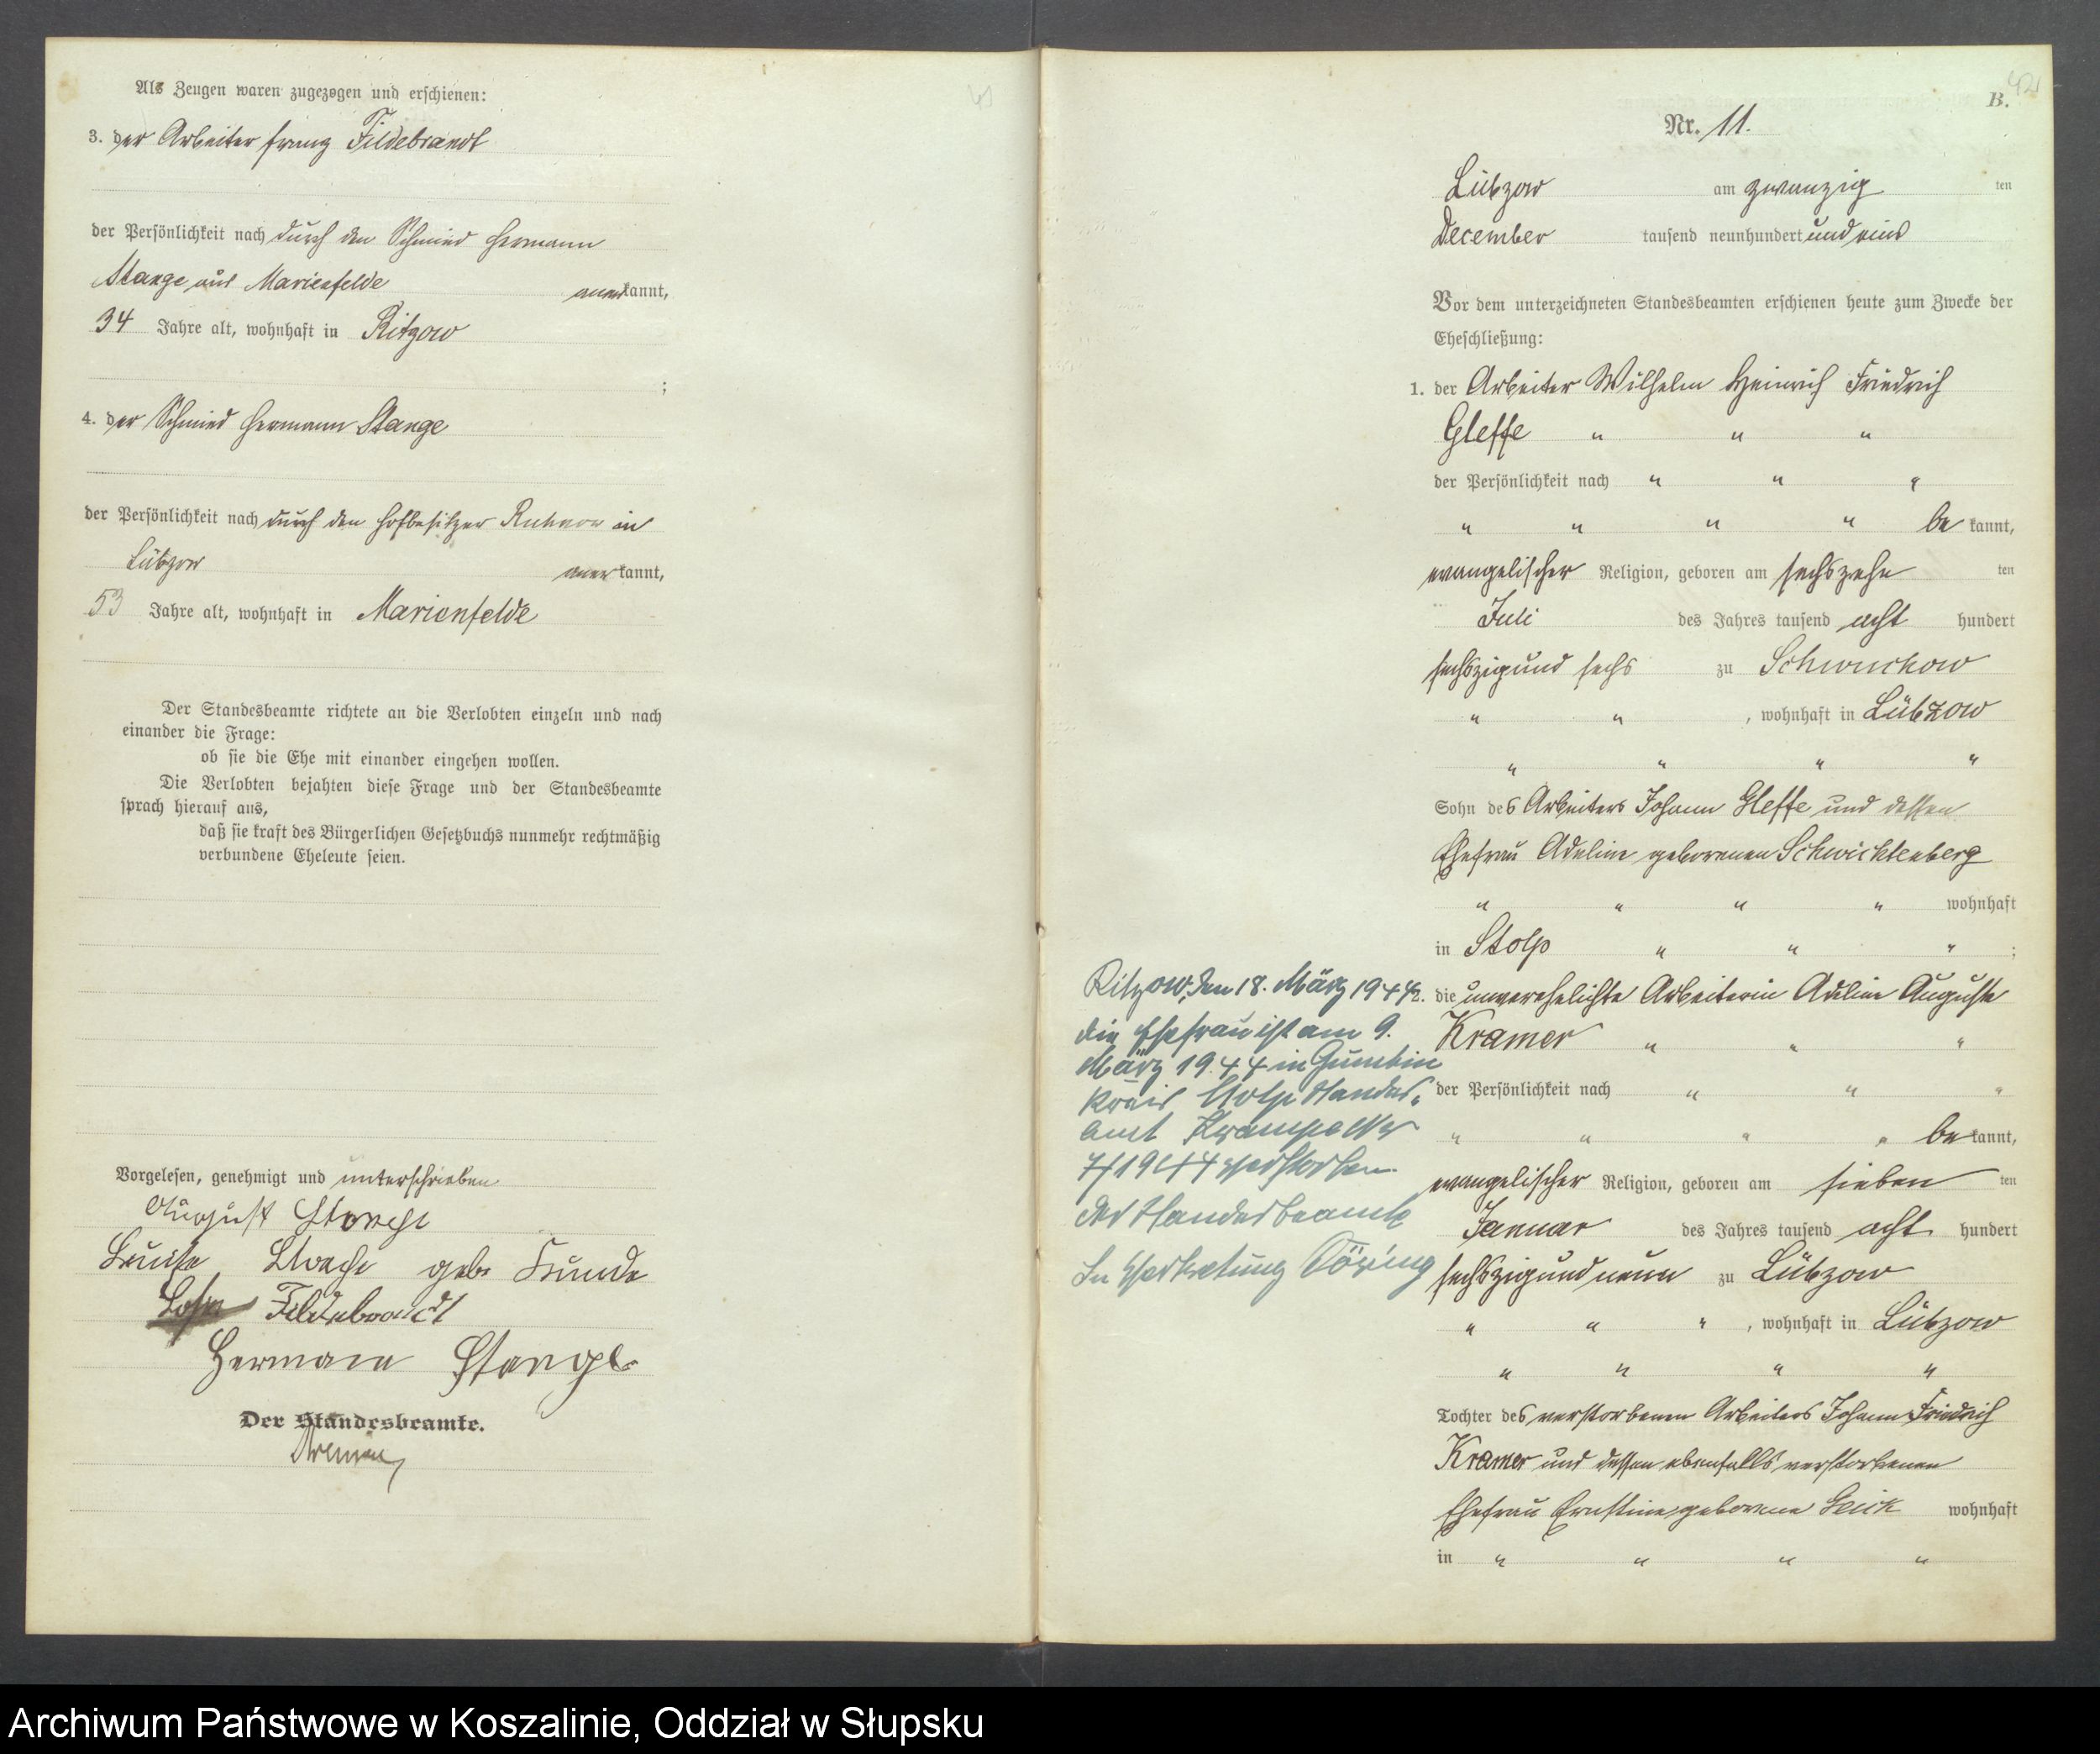 Als Zeugen waren zugezogen und erschienen:
3. der Arbeiter Franz Fildebrandt
der Persönlichkeit nach durch den Schmied Hermann
Stange aus Marienfelde anerkannt,
34 Jahre alt, wohnhaft in Ritzow
;
4. der Schmied Hermann Stange
der Persönlichkeit nach durch den Hofbesitzer in
Lübzow anerkannt,
53 Jahre alt, wohnhaft in Marienfelde
Der Standesbeamte richtete an die Verlobten einzeln und nach
einander die Frage:
ob sie die Ehe mit einander eingehen wollen.
Die Verlobten bejahten diese Frage und der Standesbeamte
sprach hierauf aus,
daß sie kraft des Bürgerlichen Gesetzbuchs nunmehr rechtmäßig
verbundene Eheleute seien.
Vorgelesen, genehmigt und unterschrieben
August
Luise geb.
Fildebrandt
Hermann Stange
Der Standesbeamte.
42
B.
Nr. 11.
Lübzow am zwanzig ten
December tausend neunhundert und eins
Vor dem unterzeichneten Standesbeamten erschienen heute zum Zwecke der
Eheschließung:
1. der Arbeiter Wilhelm Heinrich Friedrich
Gleffe " " "
der Persönlichkeit nach " " "
" " " " be kannt,
evangelischer Religion, geboren am sechszehn ten
Juli des Jahres tausend acht hundert
sechszig und sechs zu Schwuchow
" " , wohnhaft in Lübzow
" " " "
Sohn des Arbeiters Johann Gleffe und dessen
Ehefrau Adeline geborenen Schwichtenberg
" " " " wohnhaft
in Stolp " " " ;
2. die unverehelichte Arbeiterin Adeline Auguste
Kramer " " "
der Persönlichkeit nach " " "
" " " " be kannt,
evangelischer Religion, geboren am sieben ten
Januar des Jahres tausend acht hundert
sechszig und neun zu Lübzow
" " " , wohnhaft in Lübzow
" " " "
Tochter des verstorbenen Arbeiters Johann Friedrich
Kramer und dessen ebenfalls verstorbenen
Ehefrau Ernstine geborene wohnhaft
in " " " "
Ritzow, den 18. März 1944
die Ehefrau ist am 9.
März 1944 in Gumbin
Kreis Stolp Standes-
amt Krampe Nr
7/1944 verstorben.
Der Standesbeamte
In Vertretung Döring
Archiwum Państwowe w Koszalinie, Oddział w Słupsku